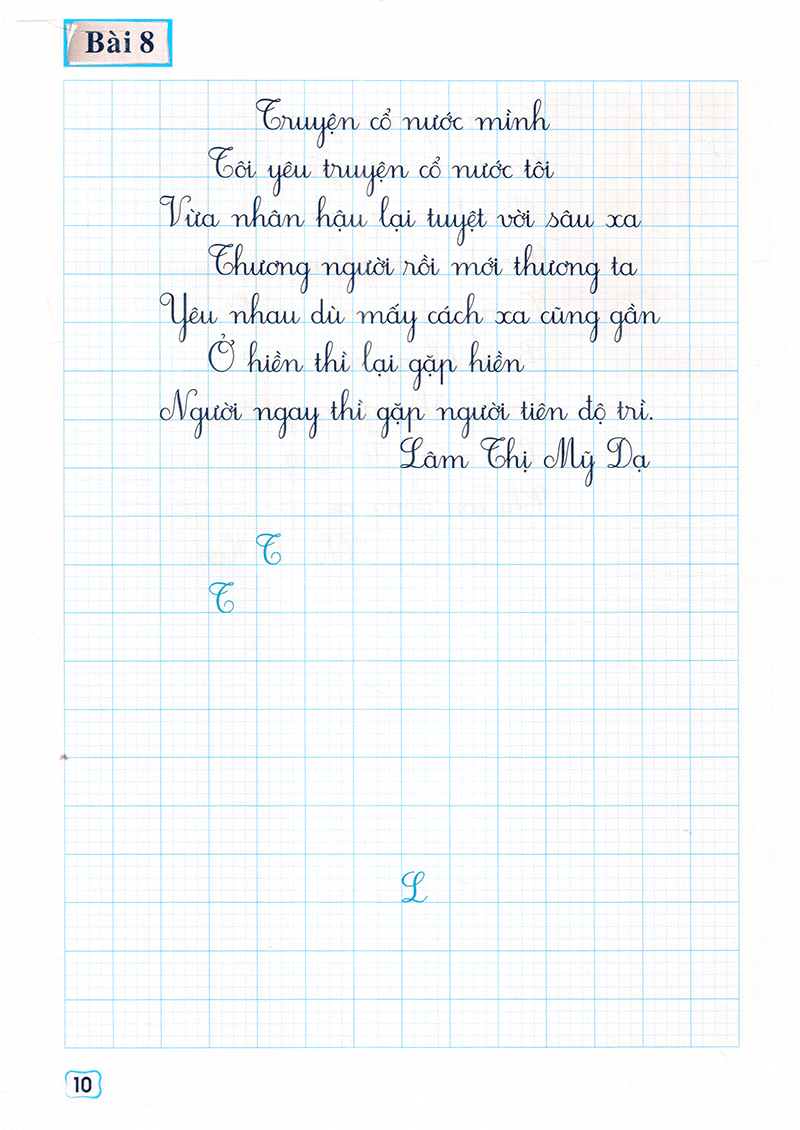 Bài 8
Truyện cổ nước mình
Tôi yêu truyện cổ nước tôi
Vừa nhân hậu lại tuyệt vời sâu xa
Thương người rồi mới thương ta
Yêu nhau dù mấy cách xa cũng gần
Ở hiền thì lại gặp hiền
Người ngay thì gặp người tiên độ trì.
Lâm Thị Mỹ Dạ
T
T
L
10